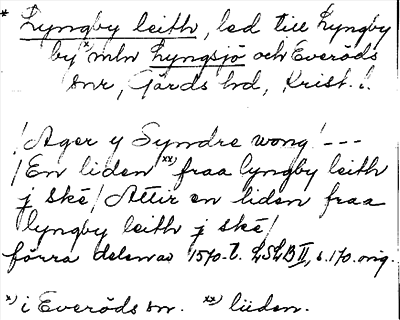 * Lyngby leith, led till Lyngby
by x) mln Lyngsjö och Everöds
snr, Gärds hd, Krist. l.
/Ager y Syndre wong/ ---
/En liden xx) fraa lyngby leith
j ske/ Attir en liden fraa
lyngby leith j ske/
förra delen av 1570-t. LSLB II, s. 170. orig.
x) i Everöds sn. xx) lüden.